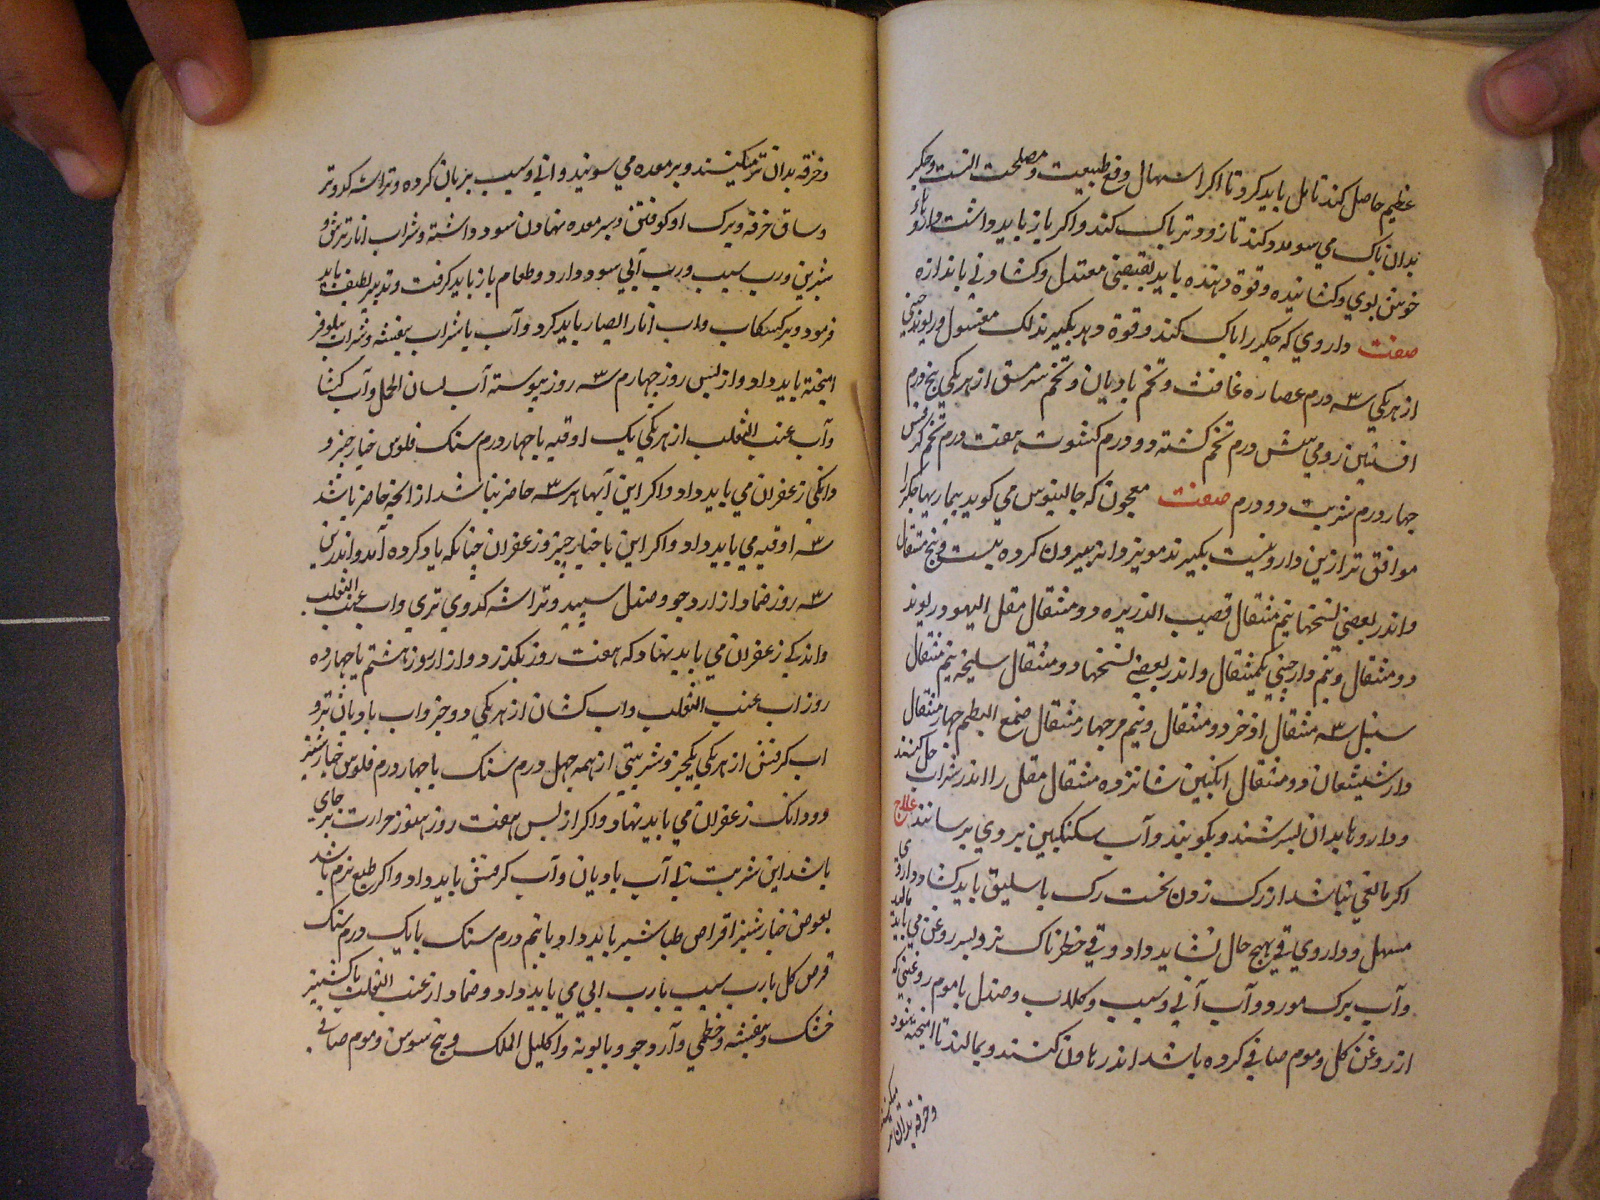 عظیم حاصل کند تامل باید کرد تا اکر اسهال وقع طبیعت و مصلحت انست و جکر
بدان پاک می سود مدد کند تا زودتر پاک کند و اکر باز باید داشت دارو
خوش بوی و کشاینده و قوة دهنده باید بقبضی معتدل و کشادنی باندازه
صفت داروي که جکر را پاک کند و قوة دهد بکیرند لک مغسول و ریوند چینی
از هر یکی سه درم عصاره غافث و تخم بادیان و تخم سرمق از هر یکی پنج درم
افسنتین رومی شش درم تخم کشنه دو درم کشوت هفت درم تخم کرفس
چهار درم شربت دو درم صفت معجون که جالینوس می کوید بیماریهاء جکر را
موافق تر ازین دارو نیست بکیرند مویز دانه بیرون کرده بیست و پنج مثقال
و اندر بعضی نسخها نیم مثقال قصب الذریره دو مثقال مقل الیهود ریوند
دو مثقال و نیم دارچینی یکمثقال و اندر بعضی نسخها دو مثقال سلیخه نیم مثقال
سنبل سه مثقال اذخر دو مثقال و نیم مر چهار مثقال صمغ البطم چهار مثقال
دارشیشعان دو مثقال انکبین شانزده مثقال مقل را اندر شراب حل کنند
و داروها بدان بسرشند و بکویند و آب سکنکبین بر وي برسانند علاج
اکر مانعی نباشد از رک زدن نخست رک باسلیق باید کشاد و داروی
مسهل و داروي قی بهیچ حال نشاید داد و قی خطرناک تر و بسر روغن می باید مالید
و آب برک مورد و آب آبی و سیب و کلاب و صندل با موم روغنی که
از روغن کل و موم صافی کرده باشد اندر هاون کنند و بمالند تا امیخته شود
و خرقه بدان تر میکنند
و خرقه بدان تر میکنند و بر معده می سونهند و ابی و سیب بریان کرده و تراشه کدو تر
و ساق خرفه و برک او کوفتن و بر معده نهادن سود داشته و شراب انار ترش و
شیرین و رب سیب و رب آبی سود دارد و طعام باز باید کرفت و تدبیر لطیف باید
فرمود و بر کشکاب و اب انار اقتصار باید کرد و آب با شراب بنفشه و شراب نیلوفر
امیخته باید داد و از پس روز چهارم سه روز پیوسته آب لسان الحمل و آب کشنا
و آب عنب الثعلب از هر یکی یک اوقیه با چهار درم سنک فلوس خیار چنبر و
دانکی زعفران می باید داد و اکر این آبها هر سه حاضر نباشد از انچه حاضر باشد
سه اوقیه می باید داد و اکر این با خیار چنبر و زعفران چنانکه یاد کرده آمد و اندرین
سه روز ضماد از ارد جو و صندل سپید و تراشه کدوي تري و اب عنب الثعلب
و اندکی زعفران می باید نهاد که هفت روز بکذرد و از روز هشتم تا چهارده
روز اب عنب الثعلب و اب کشان از هر یکی دو جزو اب بادیان تر و
اب کرفس از هر یکی یکجزو شربتی از همه چهل درم سنک با چهار درم فلوس خیار شنبر
و دو دانک زعفران می باید نهاد و اکر از پس هفت روز هنوز حرارت بر جاي
باشد این شربت بی آب بادیان و آب کرفس باید داد و اکر طبع نرم باشد
بعوض خیار شنبر اقراص طباشیر باید داد با نیم درم سنک با یک درم سنک
قرص کل با رب سیب یا رب ابی می باید داد و ضماد از عنب الثعلب با کشنیز
خشک و بنفشه و خطمی و آرد جو و بابونه و اکلیل الملک و بیخ سوسن و موم صافی